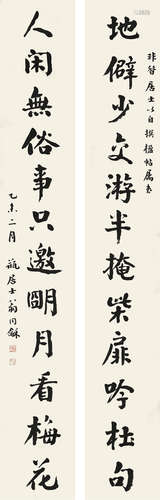 地僻少交游半掩柴扉吟杜句
非聲居士以自撰楹帖屬書
人閑無俗事只邀朙月看梅花
乙未二月
瓶居士翁同龢